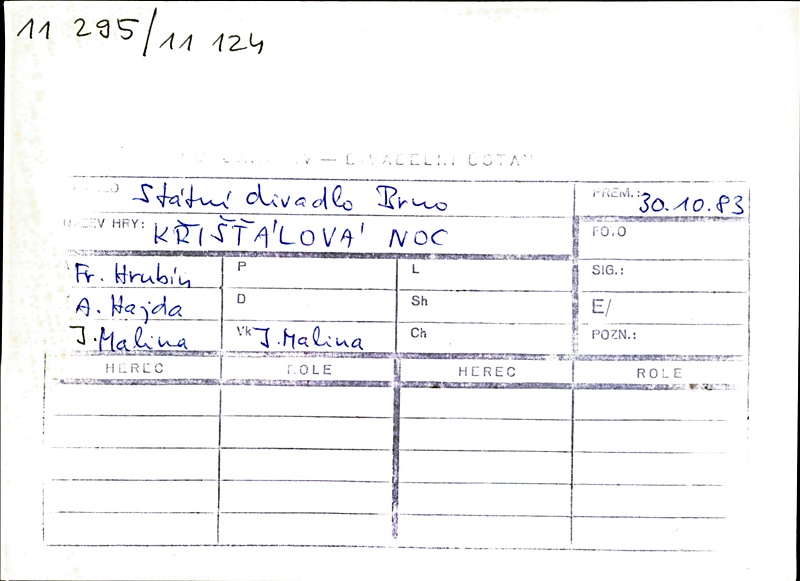 11 295/11 124
DIVADELNÍ ÚSTAV
Státní divadlo Brno
PREM.: 30.10.83
NÁZEV HRY: KŘIŠŤÁLOVÁ NOC
FOTO
Fr. Hrubín P L SIG.:
A. Hajda D Sh E/
J. Malina Vk J. Malina Ch POZN.:
HEREC ROLE HEREC ROLE